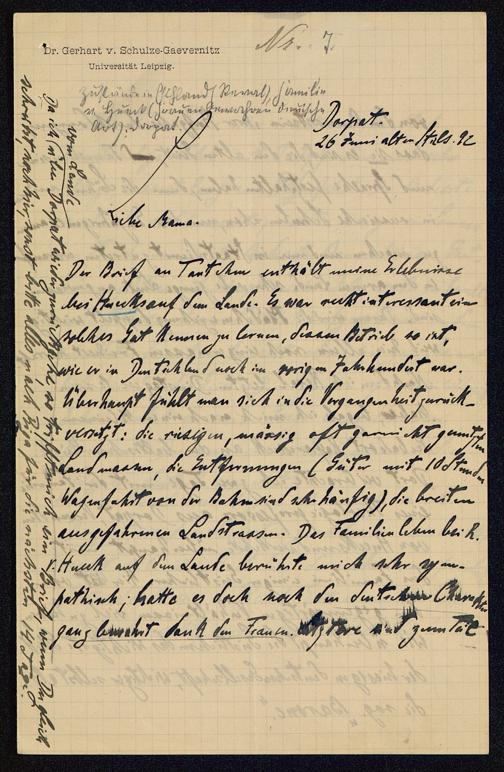 Dr. Gerhart v. Schulze-Gaevernitz
Universität Leipzig.
Nr. 7.
Zustände in Esthland (Reval) Familie
v. Hueck (Frauen bewahren deutsche
Art). Dorpat.
Dorpat.
26 Juni alten Styls. 92
Liebe Mama.
Der Brief an Tantchen enthält meine Erlebnisse
bei Huecks auf dem Lande. Es war recht interessant ein
solches Gut kennen zu lernen, dessen Betrieb so ist,
wie er in Deutschland noch im vorigen Jahrhundert war.
Überhaupt fühlt man sich in die Vergangenheit zurück-
versetzt: die riesigen, mässig oft garnicht genutzten
Landmassen, die Entfernungen (Güter mit 10 Stunden
Wagenfahrt von der Bahn sind sehr häufig), die breiten
ausgefahrenen Landstrassen. Das Familienleben bei H.
Hueck auf dem Lande berührte mich sehr sym-
pathisch; hatte es doch noch den deutschen Charakter
ganz bewahrt dank den Frauen. sind gemütl-
vom Lande
Da ich in Dorpat wieder zurück so trifft mich ein Brief, wenn Du gleich
schreibst, noch hier, sonst bitte alles nach Riga für die nächsten 14 Tage.